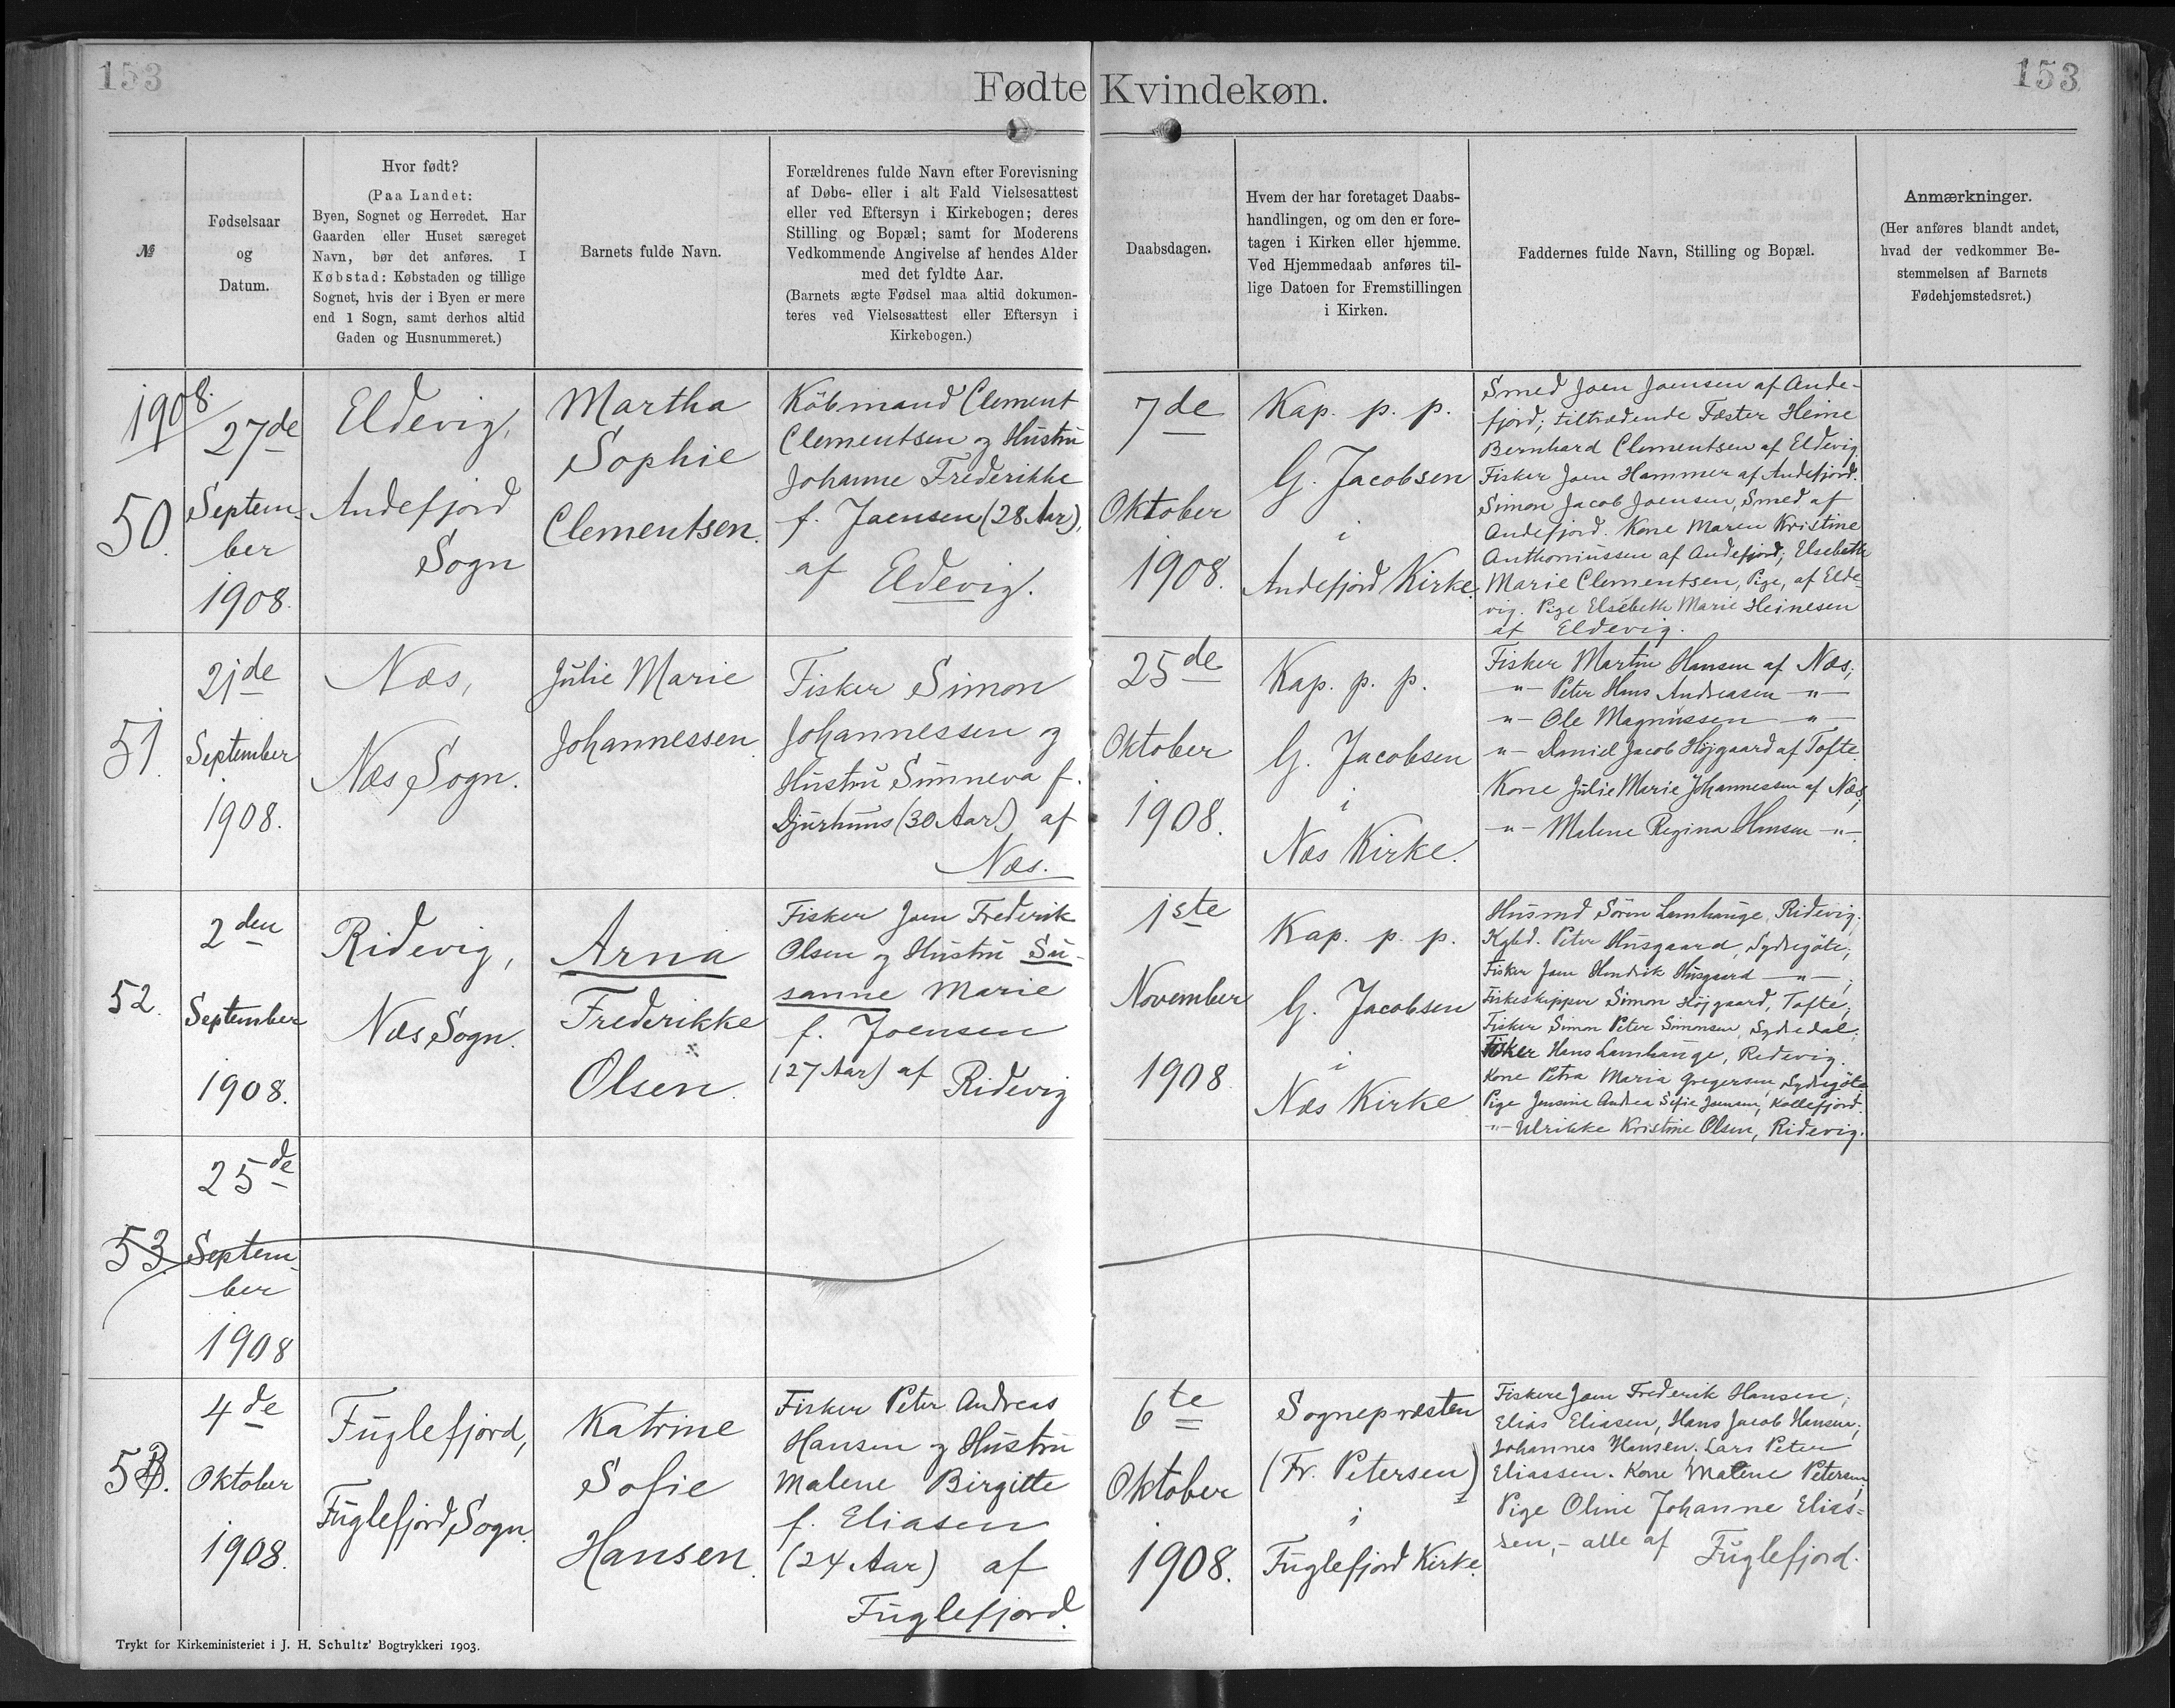 153
Fødte Kvindekøn.
153
№
Fødselsaar
og
Datum.
Hvor født?
(Paa Landet:
Byen, Sognet og Herredet. Har
Gaarden eller Huset særeget
Navn, bør det anføres. I
Købstad: Købstaden og tillige
Sognet, hvis der i Byen er mere
end 1 Sogn, samt derhos altid
Gaden og Husnummeret.)
Barnets fulde Navn.
Forældrenes fulde Navn efter Forevisning
af Døbe- eller i alt Fald Vielsesattest
eller ved Eftersyn i Kirkebogen; deres
Stilling og Bopæl; samt for Moderens
Vedkommende Angivelse af hendes Alder
med det fyldte Aar.
(Barnets ægte Fødsel maa altid dokumen-
teres ved Vielsesattest eller Eftersyn i
Kirkebogen.)
Daabsdagen.
Hvem der har foretaget Daabs-
handlingen, og om den er fore-
tagen i Kirken eller hjemme.
Ved Hjemmedaab anføres til-
lige Datoen for Fremstillingen
i Kirken.
Faddernes fulde Navn, Stilling og Bopæl.
Anmærkninger.
(Her anføres blandt andet,
hvad der vedkommer Be-
stemmelsen af Barnets
Fødehjemstedsret.)
1908.
50.
27de
Septem-
ber
1908.
Eldevig,
Andefjord
Sogn
Martha
Sophie
Clementsen.
Købmand Clement
Clementsen og Hustru
Johanne Frederikke
f. Joensen (28 Aar),
af Eldevig.
7de
Oktober
1908.
Kap. p. p.
G. Jacobsen
i
Andefjord Kirke.
Smed Joen Joensen af Ande-
fjord; tiltrædende Fæster Heine
Bernhard Clementsen af Eldevig
Fisker Joen Hammer af Andefjord.
Simon Jacob Joensen, Smed af
Andefjord. Kone Maren Kristine
Anthoniussen af Andefjord; Elsebeth
Marie Clementsen, Pige, af Elde-
vig. Pige Elsebeth Marie Heinesen
af Eldevig.
51.
21de
September
1908.
Næs,
Næs Sogn.
Julie Marie
Johannessen
Fisker Simon
Johannessen og
Hustru Sunneva f.
Djurhuus (30 Aar) af
Næs.
25de
Oktober
1908.
Kap. p. p.
G. Jacobsen
i
Næs Kirke.
Fisker Martin Hansen af Næs;
-"- Peter Hans Andreasen -"-
-"- Ole Magnussen -"-
-"- Daniel Jacob Højgaard af Tofte.
Kone Julie Marie Johannessen af Næs;
-"- Malene Regina Hansen -"-.
52.
2den
September
1908.
Ridevig,
Næs Sogn.
Arna
Frederikke
Olsen.
Fisker Joen Frederik
Olsen og Hustru Su-
sanne Marie
f. Joensen
(27 Aar) af Ridevig
1ste
November
1908
Kap. p. p.
G. Jacobsen
i
Næs Kirke
Husmd Sören Lamhauge, Ridevig;
Kgbd. Peter Husgaard, Sydregöte;
Fisker Joen Hendrik Husgaard -"-;
Fiskeskipper Simon Höjgaard, Tofte;
Fisker Simon Peter Simonsen, Sydredal;
Fisker Hans Lamhauge, Ridevig.
Kone Petra Maria Gregersen, Sydregöte
Pige Jensine Andrea Sofie Joensen, Kollefjord.
-"- Ulrikke Kristine Olsen, Ridevig.
53.
25de
Septem-
ber
1908
53.
4de
Oktober
1908.
Fuglefjord,
Fuglefjord Sogn.
Katrine
Sofie
Hansen.
Fisker Peter Andreas
Hansen og Hustru
Malene Birgitte
f. Eliasen
(24 Aar) af
Fuglefjord.
6te
Oktober
1908.
Sognepræsten
(Fr. Petersen)
i
Fuglefjord Kirke.
Fiskere Joen Frederik Hansen;
Elias Eliasen, Hans Jacob Hansen;
Johannes Hansen. Lars Peter
Eliassen. Kone Malene Petersen;
Pige Oline Johanne Elias-
sen, - alle af Fuglefjord.
Trykt for Kirkeministeriet i J. H. Schultz' Bogtrykkeri 1903.